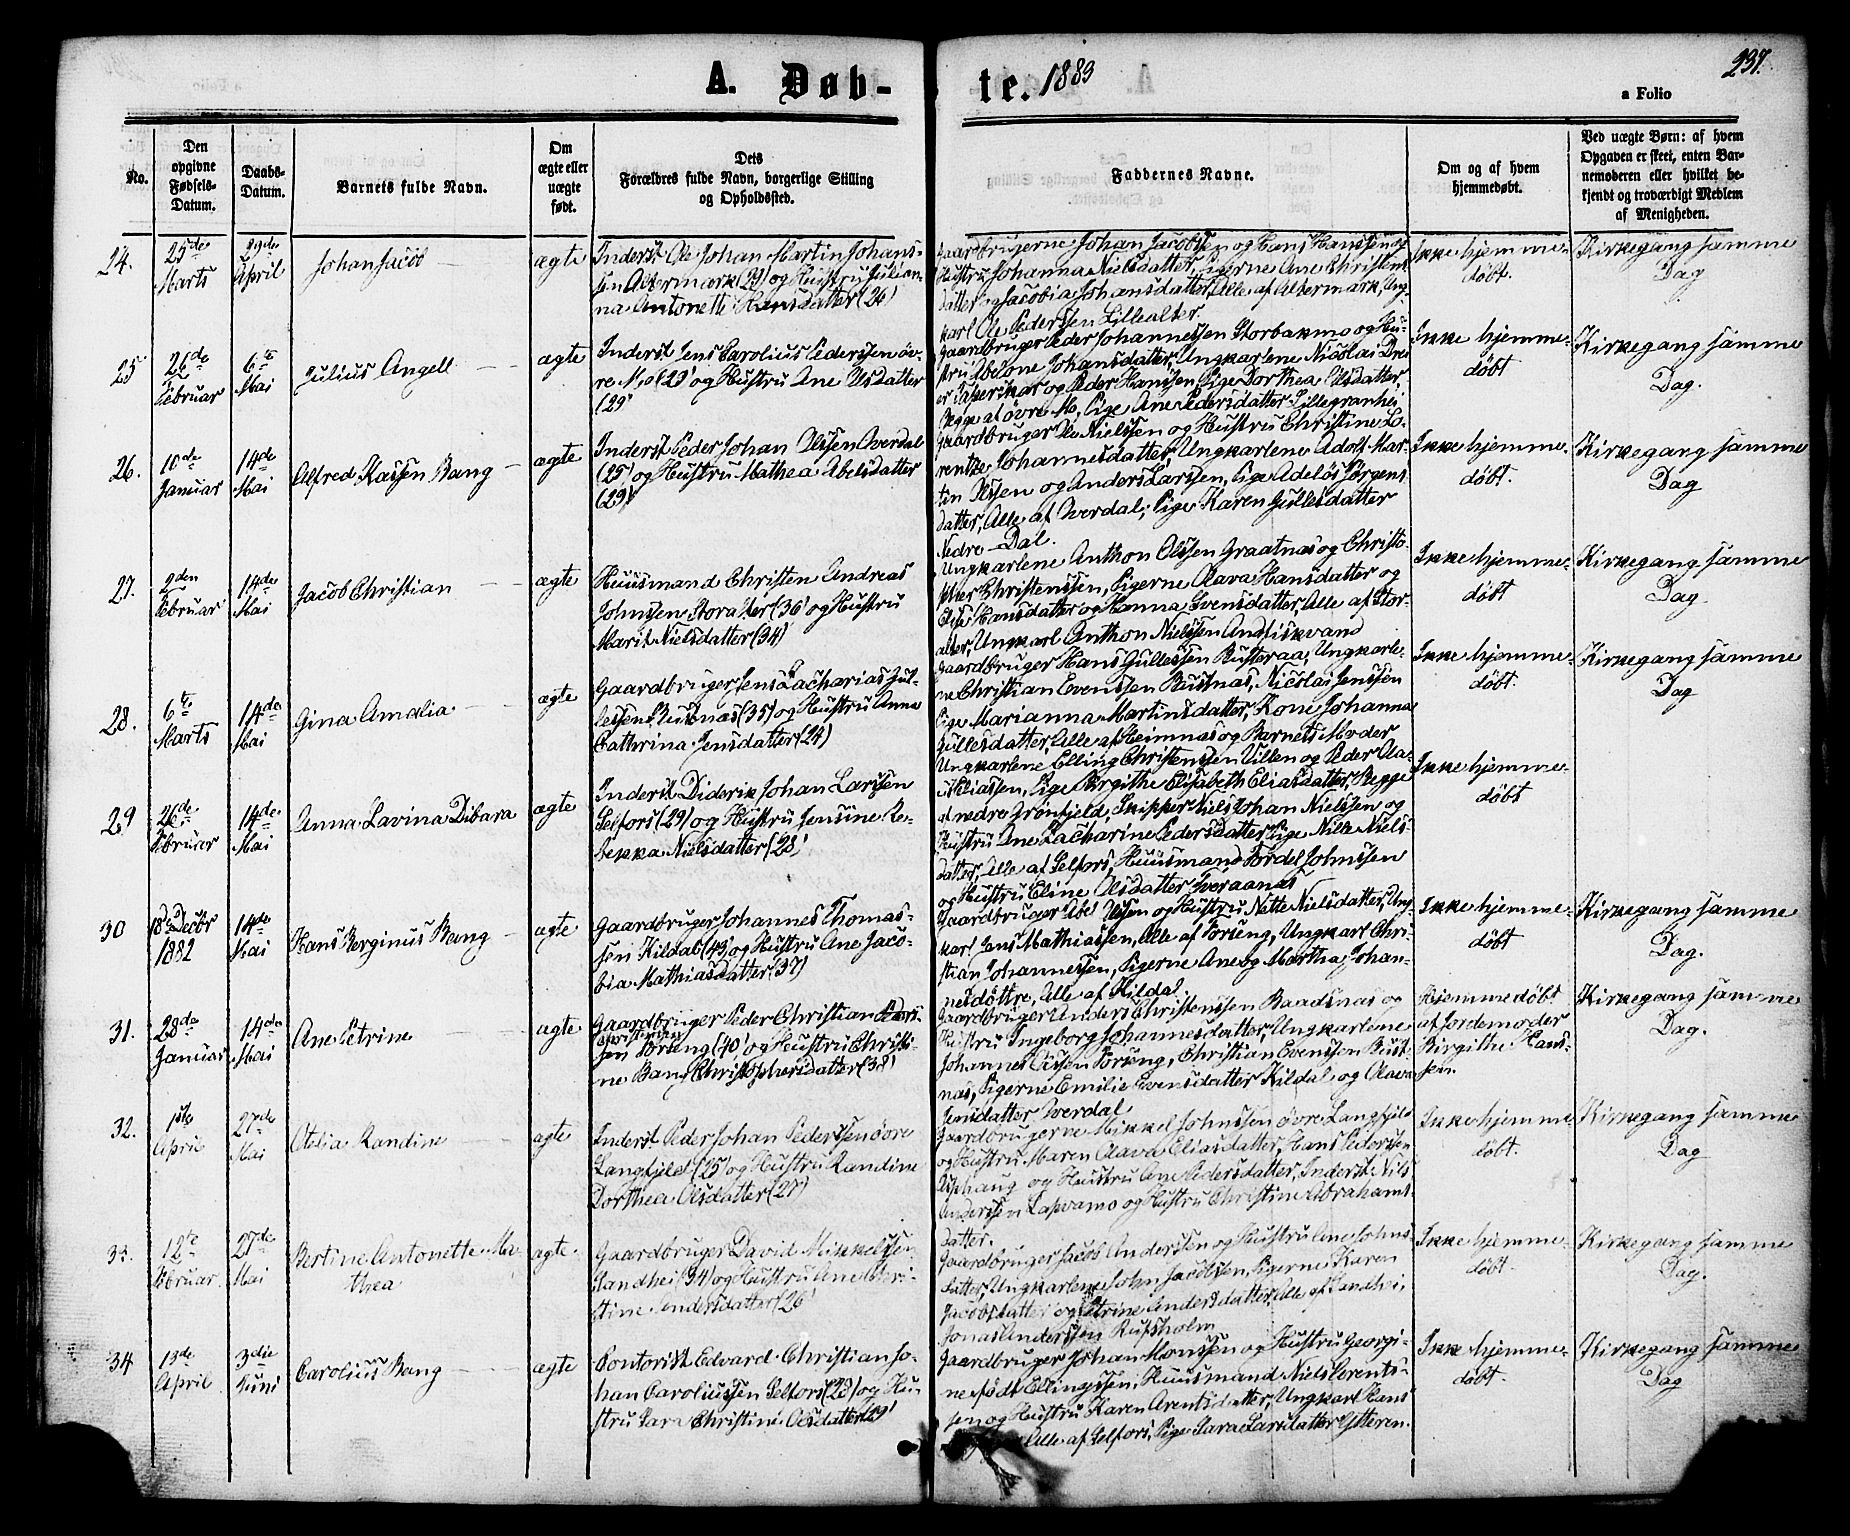 237.
A. Døb-
te. 1883
a Folio
No.
Den
opgivne
Fødsels-
Datum.
Daabs-
Datum.
Barnets fulde Navn.
Om
ægte eller
uægte
født.
Dets
Forældres fulde Navn, borgerlige Stilling
og Opholdssted.
Faddernes Navne.
Om og af hvem
hjemmedøbt.
Ved uægte Børn: af hvem
Opgaven er skeet, enten Bar-
nemoderen eller hvilket be-
kjendt og troværdigt Medlem
af Menigheden.
24.
25de
Marts
29de
April
Johan Jacob
ægte
Inderst Ole Johan Martin Johans-
sen Altermark (29) og Hustru Julian-
na Antonette Hansdatter (26)
Gaardbrugerne Johan Jacobsen og Hans Hanssen og
Hustru Johanna Nielsdatter, Pigerne Ane Christens
datter og Jacobia Johansdatter, Alle af Altermark, Ung-
karl Ole Pederssen Lillealter.
Ikke hjemme-
døbt.
Kirkegang samme
Dag
25
26de
Februar
6te
Mai
Julius Angell
ægte
Inderst Jens Carolius Pederssen øv-
re Mo (23) og Hustru Ane Olsdatter
(29)
Gaardbruger Peder Johannessen Storbakmo og Hu-
stru Abelone Johansdatter, Ungkarlene Nicolai
og Peder Hanssen, Pige Dorthea Olsdatter,
Begge af øvre Mo, Pige Ane Pedersdatter Lillegranhei
Ikke hjemme-
døbt
Kirkegang samme
Dag.
26.
10de
Januar
14de
Mai
Alfred Kassen Bang
ægte
Inderst Peder Johan Olssen Averdal
(25) og Hustru Mathea Abelsdatter
(29)
Gaardbruger Ole Nielssen og Hustru Christine Lo-
rentze Johannesdatter, Ungkarlene Adolf Mar-
tin Olssen og Anders Larssen, Pige Adelös Jørgens
datter, Alle af Averdal; Pige Karen Gullesdatter
Nedre-Dal.
Ikke hjemme-
døbt.
Kirkegang samme
Dag
27.
2den
Februar
14de
Mai
Jacob Christian
ægte
Huusmand Christen Andreas
Johnsen Storalter (36) og Hustru
Marit Nielsdatter (34)
Ungkarlene Anthon Olssen Graatnæs og Christo-
pher Christenssen, Pigerne Olava Hansdatter og
Elise Hansdatter og Hanna Svensdatter, Alle af Stor-
alter, Ungkarl Anthon Nielssen Andfiskvand
Ikke hjemme-
døbt
Kirkegang samme
Dag.
28.
6te
Marts
14de
Mai
Gina Amalia
ægte
Gaardbruger Jens Zacharias Gul-
lessen Bustnæs (35) og Hustru Anna
Cathrina Jensdatter (24)
Gaardbruger Hans Gullessen Busteraa, Ungkarle-
ne Christian Evenssen Bustnæs, Nicolai Jenssen
Pige Marianna Martinsdatter, Kone Johanna
Gullesdatter, Alle af Heimnæs og Barnets Moder
Ikke hjemme-
døbt.
Kirkegang samme
Dag
29
26de
Februar
14de
Mai
Anna Lavina Dibara
ægte
Inderst Diderik Johan Larssen
Selfors (29) og Hustru Jensine Re-
bekka Nielsdatter (28)
Ungkarlene Elling Christenssen Villen og Peder Ola-
i Eliassen, Pige Birgithe Elisabeth Eliasdatter, Begge
af nedre Grønfjeld, Skipper Niels Johan Nielssen og
Hustru Ane Zacharine Pedersdatter, Pige Nille Niels-
datter, Alle af Selfors, Huusmand Tordel Johnssen
og Hustru Eline Olsdatter Tveraanæs
Ikke hjemme-
døbt
30
18de Decbr
1882
14de
Mai
Hans Berginus Bang
ægte
Gaardbruger Johannes Thomas-
sen Kildal (43) og Hustru Ane Jaco-
bia Mathiasdatter (37)
Gaardbruger Abel Olssen og Hustru Nette Nielsdatter, Ung-
karl Jens Mathiassen, Alle af Forseng, Ungkarl Chri-
stian Johannessen, Pigerne Ane og Martha Johan-
nesdøttre, Alle af Kildal.
Ikke hjemme-
døbt
Kirkegang samme
Dag.
31.
28de
Januar
14de
Mai
Ane Petrine
ægte
Gaardbruger Peder Christian
sen Forseng (40) og Hustru Christi-
ne Bang Christophersdatter (38)
Gaardbruger Anders Christenssen Baadsnæs og
Hustru Ingeborg Johannesdatter, Ungkarlene
Johannes Olssen Forseng, Christian Evenssen Bust-
næs, Pigerne Emilie Evensdatter Kildal og Olava
Jensdatter Averdal
Hjemmedøbt
af Jordemoder
Birgithe Hans-
sen.
Kirkegang samme
Dag.
32.
1ste
April
27de
Mai
Otelia Randine
ægte
Inderst Peder Johan Pederssen øvre
Langfjeld (25) og Hustru Randine
Dorthea Olsdatter (27)
Gaardbrugerne Mikkel Johnssen øvre Langfjeld
og Hustru Maren Olava Eliasdatter, Hans Pederssen
Asphaug og Hustru Ane Pedersdatter, Inderst Nils
Anderssen Lapvamo og Hustru Christine Abrahams-
datter.
Ikke hjemme
døbt.
Kirkegang samme
Dag
33.
12te
Februar
27de
Mai
Bertine Antonette Mar-
thea
ægte.
Gaardbruger David Mikkelssen
Sandhei (34) og Hustru Ane Chri-
stine Andersdatter (26)
Gaardbruger Jacob Anderssen og Hustru Ane Johns-
datter, Ungkarlene John Jacobsen, Pigerne Karen
Jacobsdatter og Petrine Andersdatter, Alle af Sandhei,
Jonas Anderssen Rufsholm
Ikke hjemme-
døbt.
Kirkegang samme
Dag.
34
13de
April
3die
Juni
Carolius Bang
ægte
Contorist Edvard Christian Jo-
han Caroliussen Selfors (23) og Hu-
stru Sara Christine Olsdatter (29)
Gaardbruger Johan Monssen og Hustru Georgi-
ne født Ellingssen, Huusmand Niels Lorents-
sen og Hustru Karen Arentsdatter, Ungkarl Hans
Alle af Selfors, Pige Sara Larsdatter Ytteren.
Ikke hjemme-
døbt.
Kirkegang samme
Dag